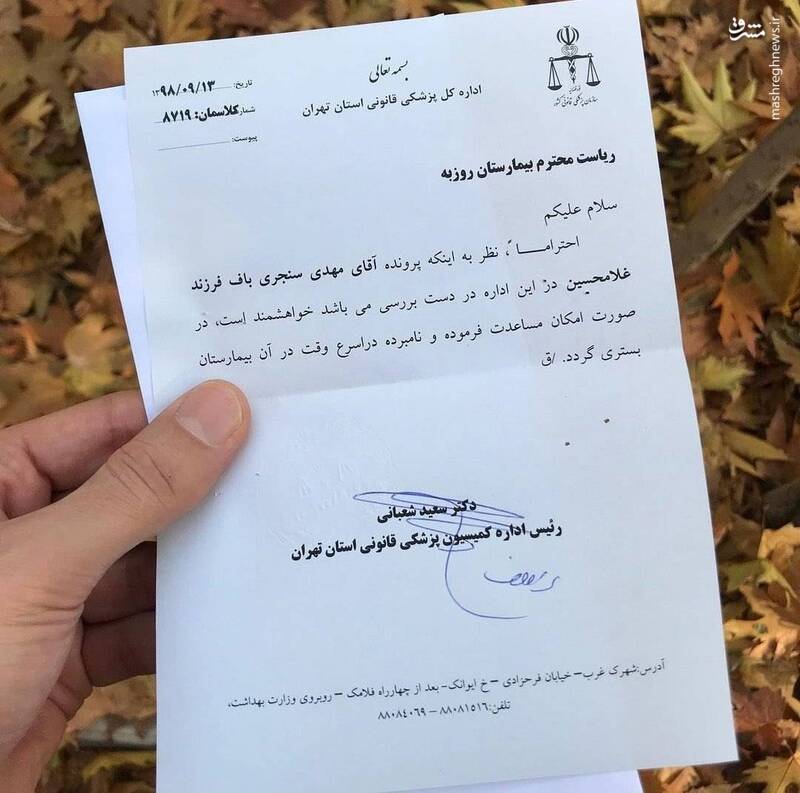 مشرق
mashreghnews.ir
بسمه تعالی
اداره کل پزشکی قانونی استان تهران
قوه قضائیه
سازمان پزشکی قانونی کشور
تاریخ: ۱۳۹۸/۰۹/۱۳
شماره کلاسمان: ۸۷۱۹
پیوست:
ریاست محترم بیمارستان روزبه
سلام علیکم
احترامــــاً، نظر به اینکه پرونده آقای مهدی سنجری باف فرزند
غلامحسین در این اداره در دست بررسی می باشد خواهشمند است، در
صورت امکان مساعدت فرموده و نامبرده دراسرع وقت در آن بیمارستان
بستری گردد. /ق
دکتر سعید شعبانی
رئیس اداره کمیسیون پزشکی قانونی استان تهران
آدرس:شهرک غرب– خیابان فرحزادی – خ ایوانک- بعد از چهارراه فلامک – روبروی وزارت بهداشت،
تلفن:۸۸۰۸۱۵۱۶ – ۸۸۰۸۴۰۶۹